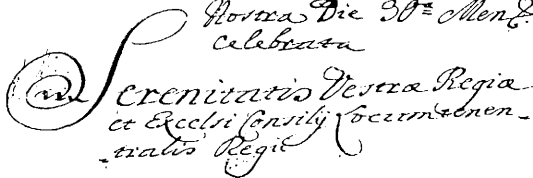 Nostra Die 30ª Mens.
celebrata
Serenitatis Vestræ Regiæ
et Excelsi Consilij Locumtenen-
-tialis Regii